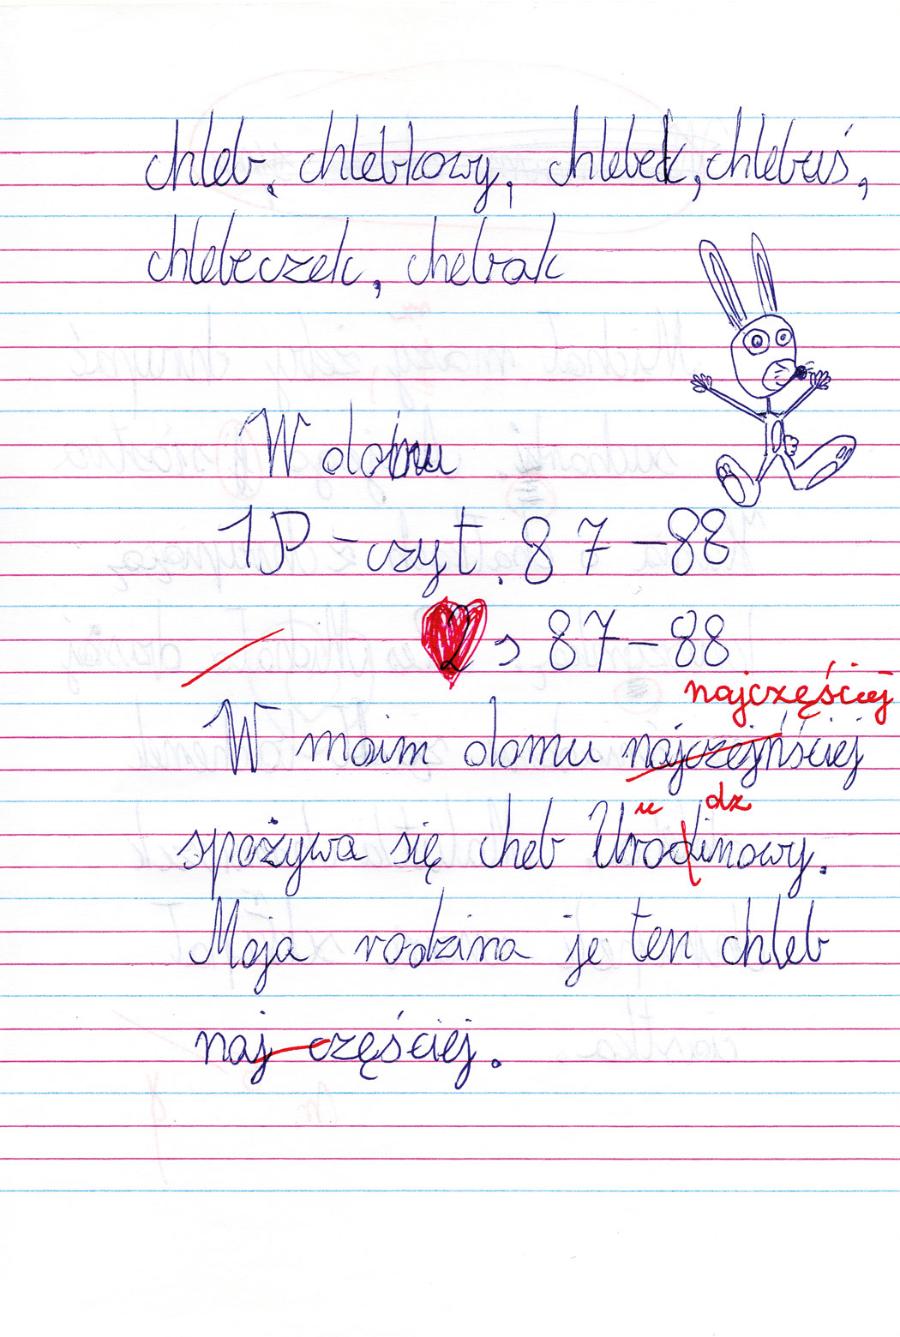 chleb, chlebkowy, chlebek, chlebuś,
chlebeczek, chebak
W domu
1P - czyt. 87-88
2 s 87-88
najczęściej
W moim domu najczejńściej
u dz
spożywa się cheb Urodinowy.
Moja rodzina je ten chleb
naj częściej.